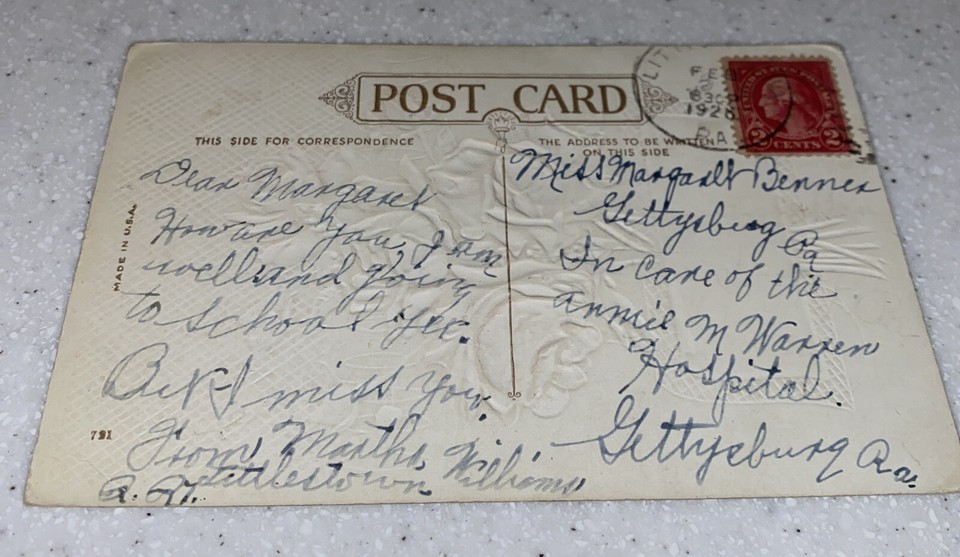 POST CARD
THIS SIDE FOR CORRESPONDENCE
THE ADDRESS TO BE WRITTEN
ON THIS SIDE
FEB
1928
PA
UNITED STATES POSTAGE
2 CENTS 2
MADE IN U.S.A.
Dear Margaret
How are you I am
well and going
to school yet.
But I miss you.
From Martha Williams
Littlestown
721
Miss Margaret Benner
Gettysburg Pa
In care of the
annie M Warren
Hospital.
Gettysburg Pa.